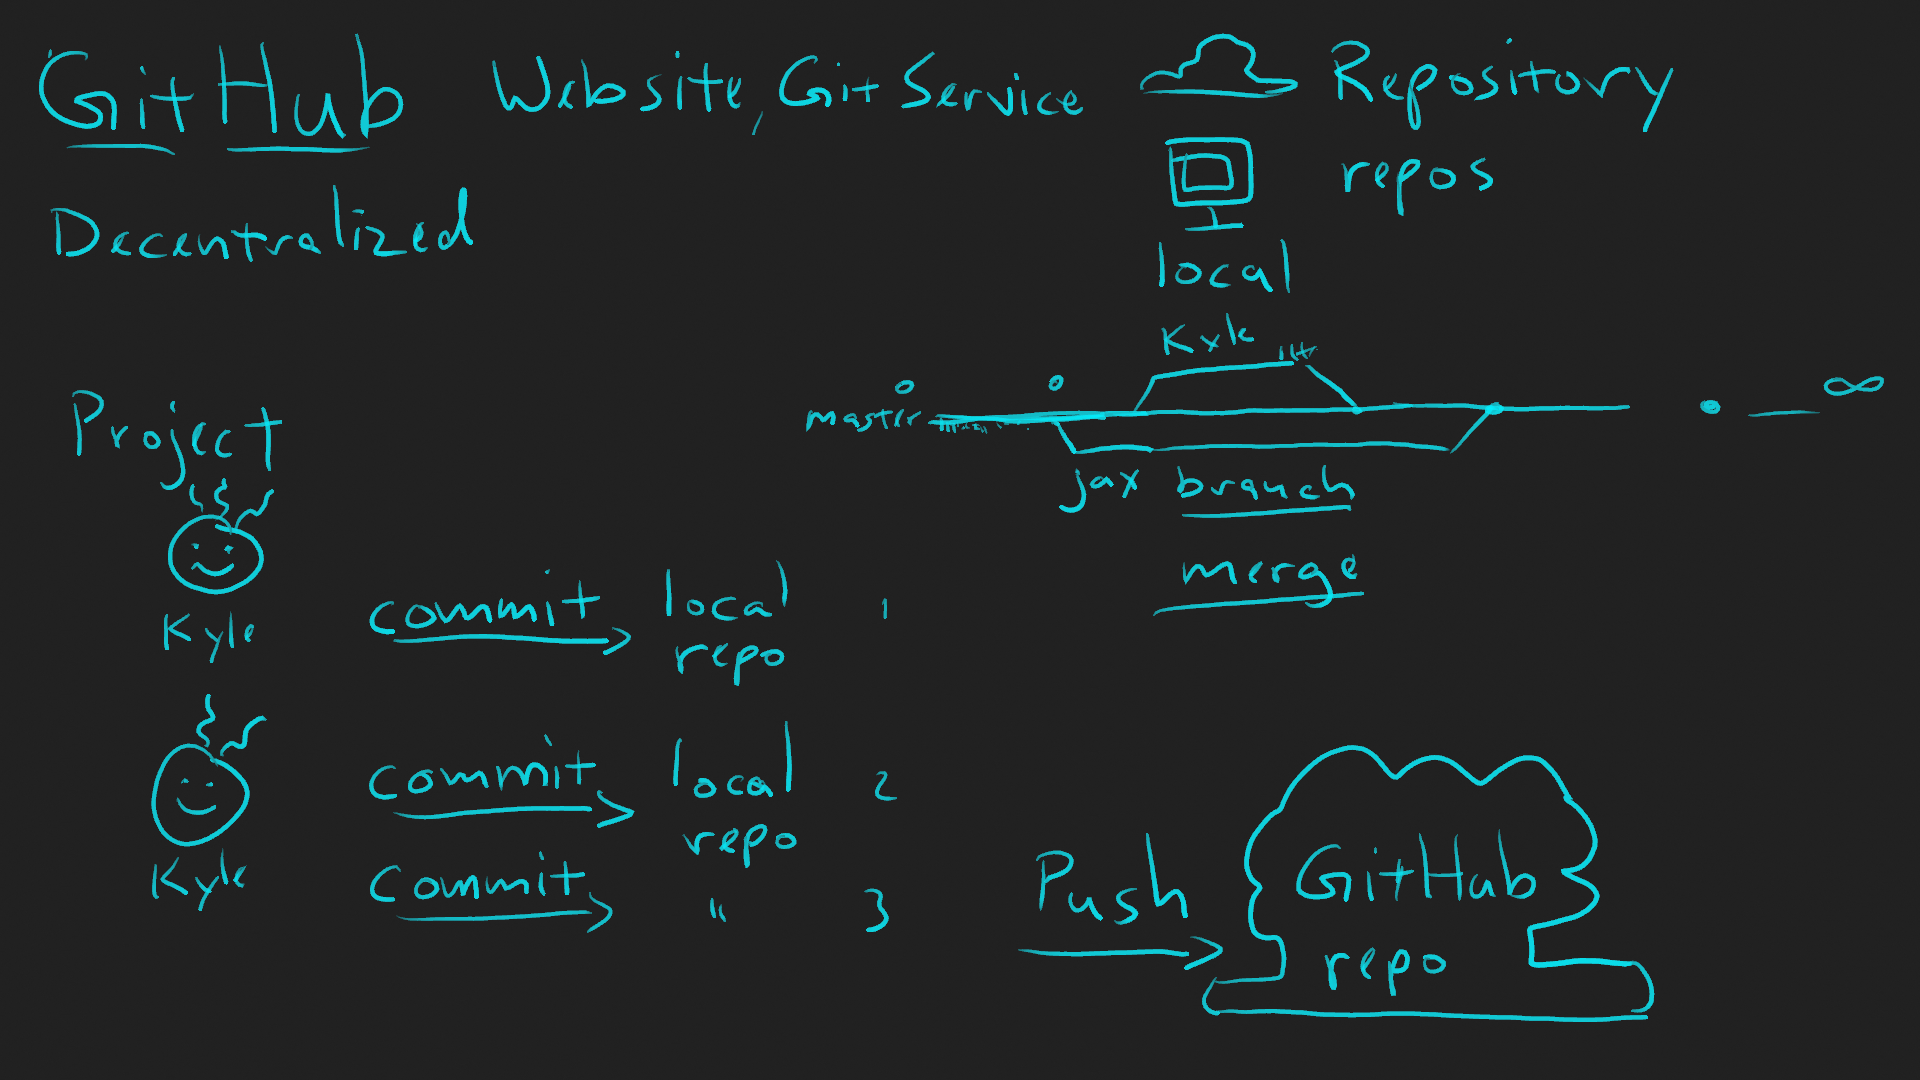 GitHub Website, Git Service Repository
repos
Decentralized
local
Kyle
master
jax branch
merge
Project
Kyle
commit local repo 1
Kyle
commit local repo 2
commit " 3
Push
GitHub
repo